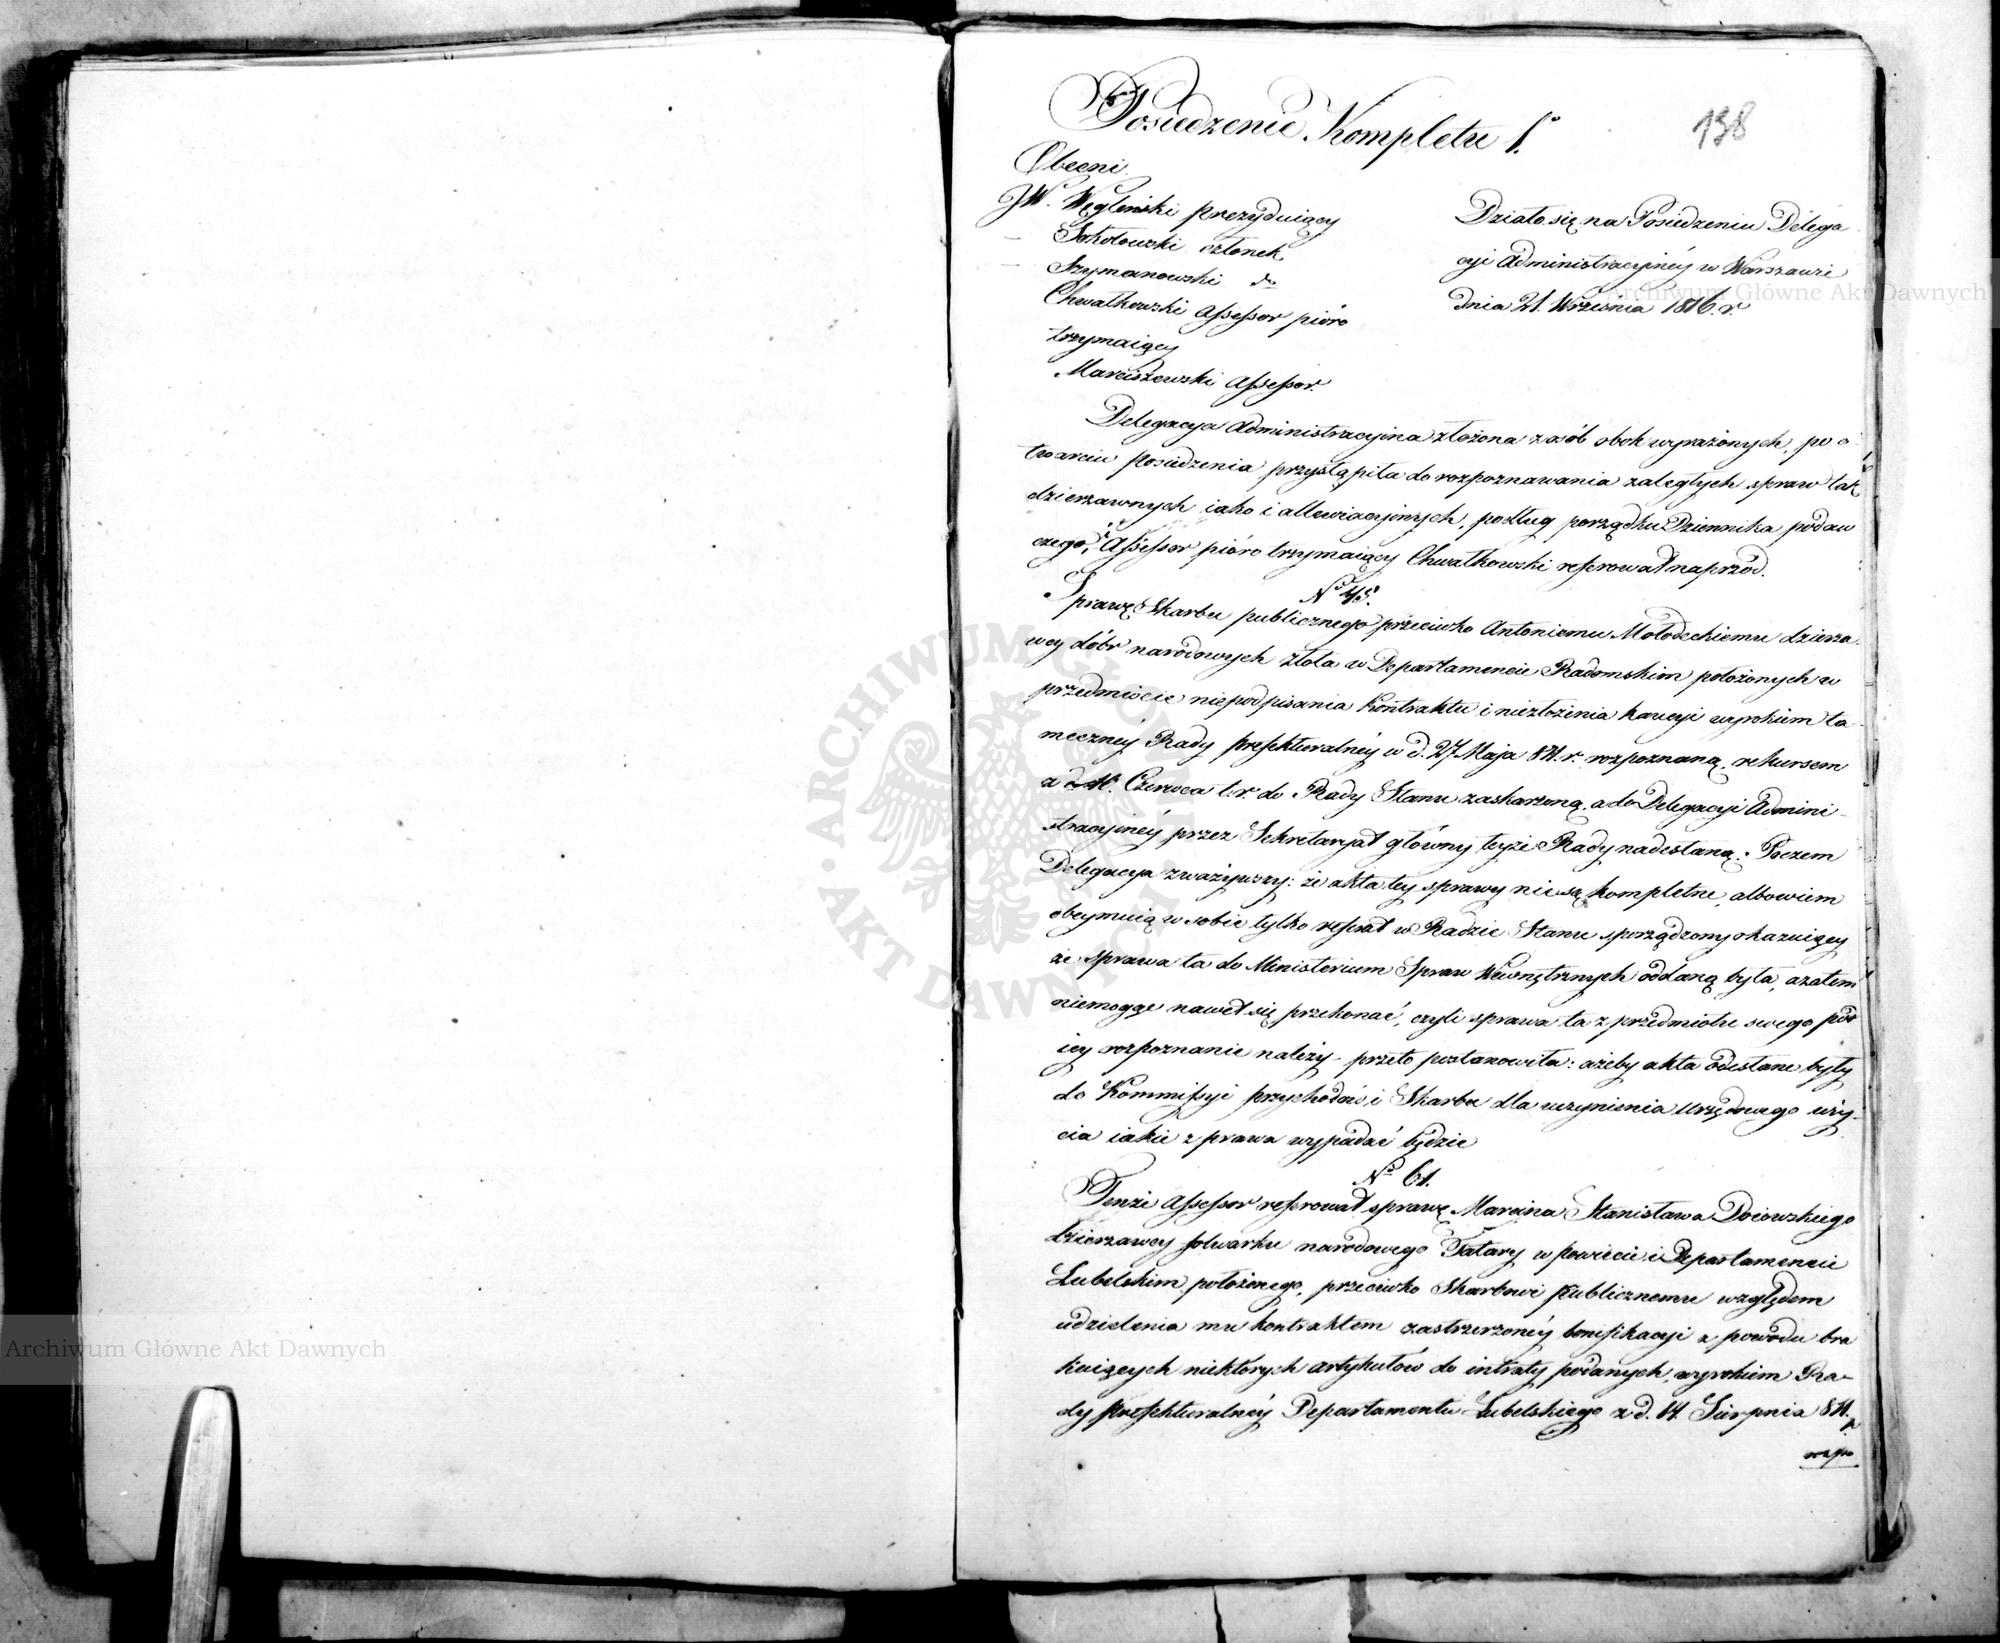 138
Posiedzenie Kompletu 1.º
Obecni.
JW. Węgleński prezyduiący
— Sokołowski członek
— Szymanowski do
Chwałkowski Assessor pióro
trzymaiący
Marciszewski Assessor.
Działo się na Posiedzeniu Delega
cyi Administracyinéy w Warszawie
dnia 21. Września 1816. r.
Delegacya Administracyina złożona z osób obok wyrażonych, po o
twarciu posiedzenia przystąpiła do rozpoznawania zaległych spraw tak
dzierzawnych iako i allewiacyjnych, podług porządku Dziennika podaw
czego, i Assessor pióro trzymaiący Chwałkowski referował naprzód.
No 45.
Sprawę Skarbu publicznego przeciwko Antoniemu Mołodeckiemu dzierza-
wcy dóbr narodowych Złota w Departamencie Radomskim położonych w
przedmiocie niepodpisania Kontraktu i niezłożenia kaucyi wyrokiem ta-
meczney Rady prefekturalnéy w d. 27 Maja 811. r. rozpoznaną, rekursem
z d. Czerwca t. r. do Rady Stanu zaskarżoną, a do Delegacyi Admini-
stracyinéy przez Sekretaryat główny teyże Rady nadesłaną. Poczem
Delegacya zważywszy: że akta tey sprawy nie są kompletne, albowiem
obeymuią w sobie tylko referat w Radzie Stanu sporządzony okazuiący
że sprawa ta do Ministerium Spraw Wewnętrznych oddaną była, a zatem
niemogąc nawet się przekonać, czyli sprawa ta z przedmiotu swego pod
iey rozpoznanie należy - przeto postanowiła: ażeby akta odesłane były
do Kommissyi przychodów i Skarbu dla uczynienia urzędowego uży-
cia iakie z prawa wypadać będzie
No 61.
Tenże Assessor referował sprawę Marcina Stanisława Doiowskiego
dzierzawcy folwarku narodowego Tatary w powiecie i Departamencie
Lubelskim położonego, przeciwko Skarbowi Publicznemu względem
udzielenia mu kontraktem zastrzeżonéy bonifikacyi z powodu bra
kuiących niektórych artykułów do intraty podanych, wyrokiem Ra-
dy prefekturalnéy Departamentu Lubelskiego z d. 14. Sierpnia 811. r.
rozpo
Archiwum Główne Akt Dawnych
Archiwum Główne Akt Dawnych
ARCHIWUM GŁÓWNE AKT DAWNYCH